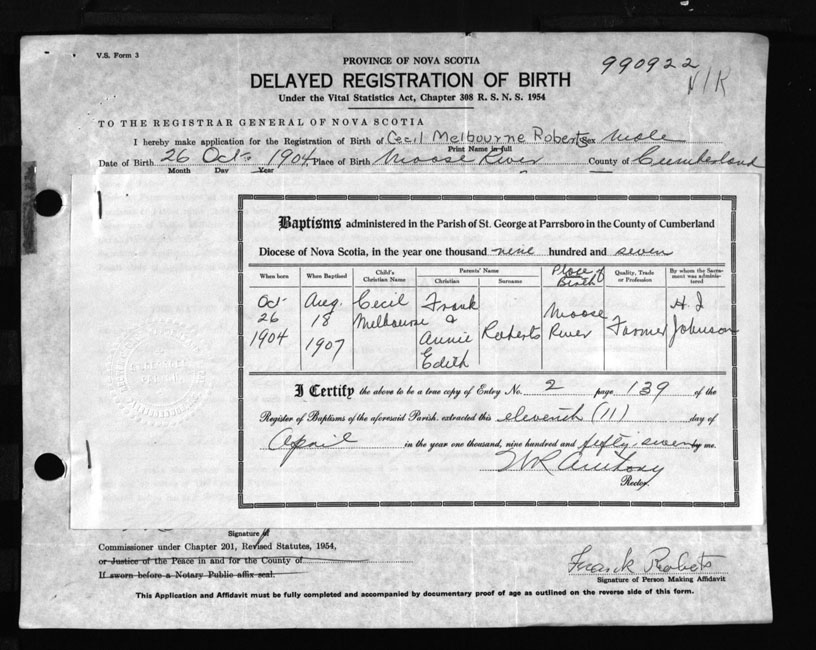 V.S. Form 3
PROVINCE OF NOVA SCOTIA
990922
DELAYED REGISTRATION OF BIRTH
N/K
Under the Vital Statistics Act, Chapter 308 R. S. N. S. 1954
TO THE REGISTRAR GENERAL OF NOVA SCOTIA
I hereby make application for the Registration of Birth of Cecil Melbourne Roberts Sex Male
Print Name in full
Date of Birth 26 Oct 1904 Place of Birth Moose River County of Cumberland
Month Day Year
Baptisms administered in the Parish of St. George at Parrsboro in the County of Cumberland
Diocese of Nova Scotia, in the year one thousand nine hundred and seven
When born When Baptised Child's Christian Name Parents' Name Christian Surname Place of Birth Quality, Trade or Profession By whom the Sacrament was administered
Oct Aug. Cecil Frank Moose H. J
26 18 Melbourne & Roberts River Farmer Johnson
1904 1907 Annie
Edith
I Certify the above to be a true copy of Entry No. 2 page 139 of the
Register of Baptisms of the aforesaid Parish, extracted this eleventh (11) day of
April in the year one thousand, nine hundred and fifty-seven by me.
WR Anthony
Rector.
Signature of
Commissioner under Chapter 201, Revised Statutes, 1954,
or Justice of the Peace in and for the County of
If sworn before a Notary Public affix seal.
Frank Roberts
Signature of Person Making Affidavit
This Application and Affidavit must be fully completed and accompanied by documentary proof of age as outlined on the reverse side of this form.